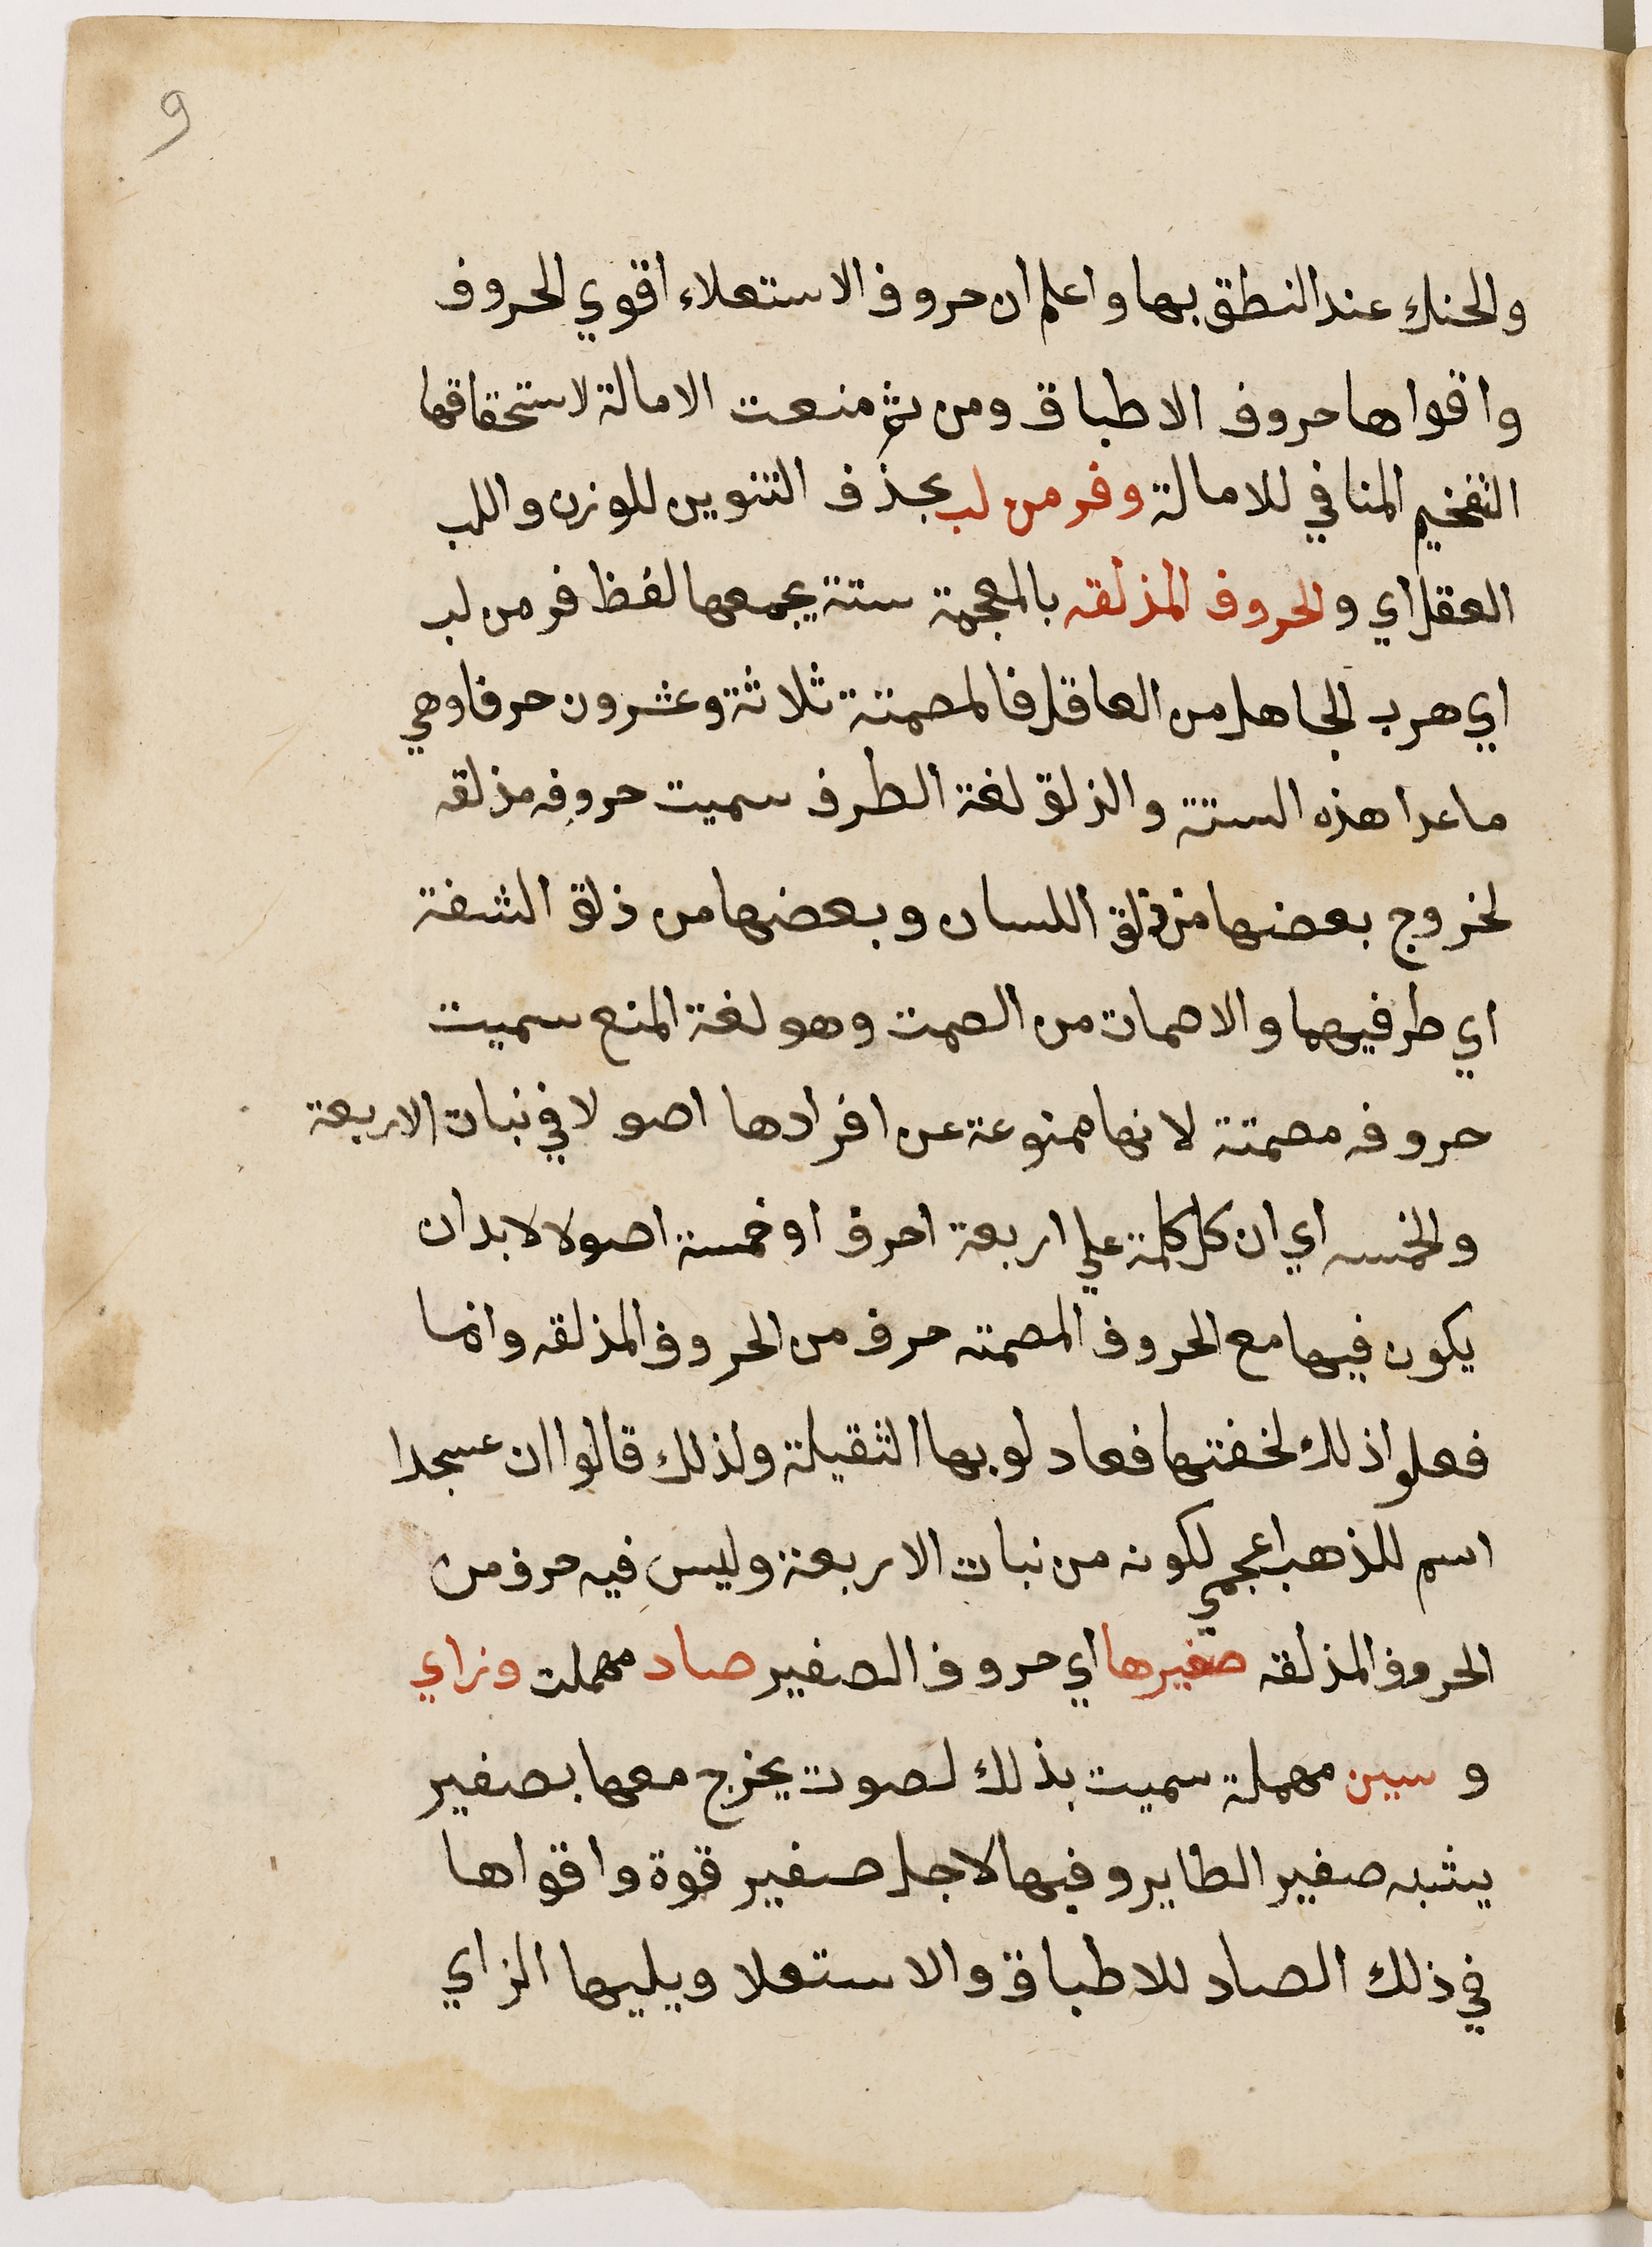 9
والحنك عند النطق بها واعلم ان حروف الاستعلاء اقوي الحروف
واقواها حروف الاطباق ومن ثم منعت الامالة لاستحقاقها
التفخيم المنافي للامالة وفر من لب بحذف التنوين للوزن واللب
العقل اي والحروف المذلقه بالمعجمة ستة يجمعها لفظ فر من لب
اي هرب الجاهل من العاقل فالمصمتة ثلاثة وعشرون حرفا وهي
ما عدا هذه الستة والزلق لغة الطرف سميت حروفه مذلقه
لخروج بعضها من ذلق اللسان وبعضها من ذلق الشفة
اي طرفيهما والاصمات من الصمت وهو لغة المنع سميت
حروفه مصمتة لانها ممنوعة عن افرادها اصولا في نبات الاربعة
والخمسه اي ان كل كلمة علي اربعة احرف او خمسة اصولا لابد ان
يكون فيها مع الحروف المصمته حرف من الحروف المذلقه وانما
فعلوا ذلك لخفتها فعادلوا بها الثقيلة ولذلك قالوا ان عسجدا
اسم للذهب اعجمي لكونه من نبات الاربعة وليس فيه حرف من
الحروف المذلقه صفيرها اي حروف الصفير صاد مهملة وزاي
و سين مهملة سميت بذلك لصوت يخرج معها بصفير
يشبه صفير الطاير وفيها لاجل صفير قوة واقواها
في ذلك الصاد للاطباق والاستعلا ويليها الزاي